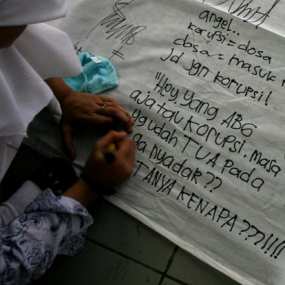 angel..
korupsi = dosa
dosa = masuk n
jd jgn korupsi!
"Hey, Yang ABG
aja tau korupsi. Masa
yg udah TUA pada
ga nyadar??
TANYA KENAPA ???!!!!